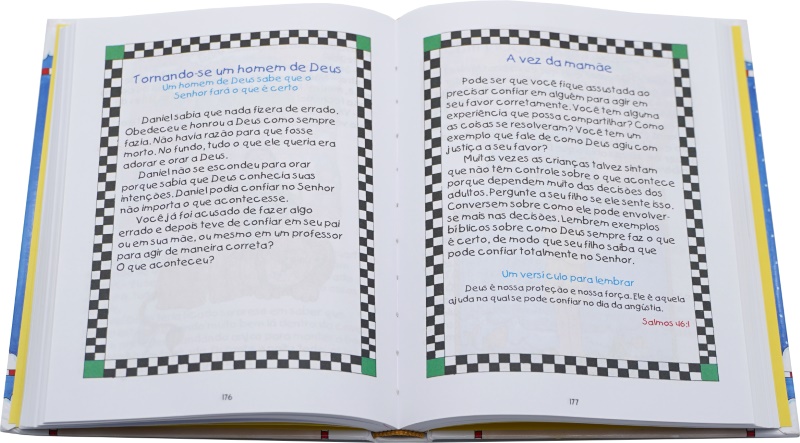 Tornando-se um homem de Deus
Um homem de Deus sabe que o
Senhor fará o que é certo
Daniel sabia que nada fizera de errado.
Obedeceu e honrou a Deus como sempre
fazia. Não havia razão para que fosse
morto. No fundo, tudo o que ele queria era
adorar e orar a Deus.
Daniel não se escondeu para orar
porque sabia que Deus conhecia suas
intenções. Daniel podia confiar no Senhor
não importa o que acontecesse.
Você já foi acusado de fazer algo
errado e depois teve de confiar em seu pai
ou em sua mãe, ou mesmo em um professor
para agir de maneira correta?
O que aconteceu?
176
A vez da mamãe
Pode ser que você fique assustada ao
precisar confiar em alguém para agir em
seu favor corretamente. Você tem alguma
experiência que possa compartilhar? Como
as coisas se resolveram? Você tem um
exemplo que fale de como Deus agiu com
justiça a seu favor?
Muitas vezes as crianças talvez sintam
que não têm controle sobre o que acontece
porque dependem muito das decisões dos
adultos. Pergunte a seu filho se ele sente isso.
Conversem sobre como ele pode envolver-
se mais nas decisões. Lembrem exemplos
bíblicos sobre como Deus sempre faz o que
é certo, de modo que seu filho saiba que
pode confiar totalmente no Senhor.
Um versículo para lembrar
Deus é nossa proteção e nossa força. Ele é aquela
ajuda na qual se pode confiar no dia da angústia.
Salmos 46:1
177